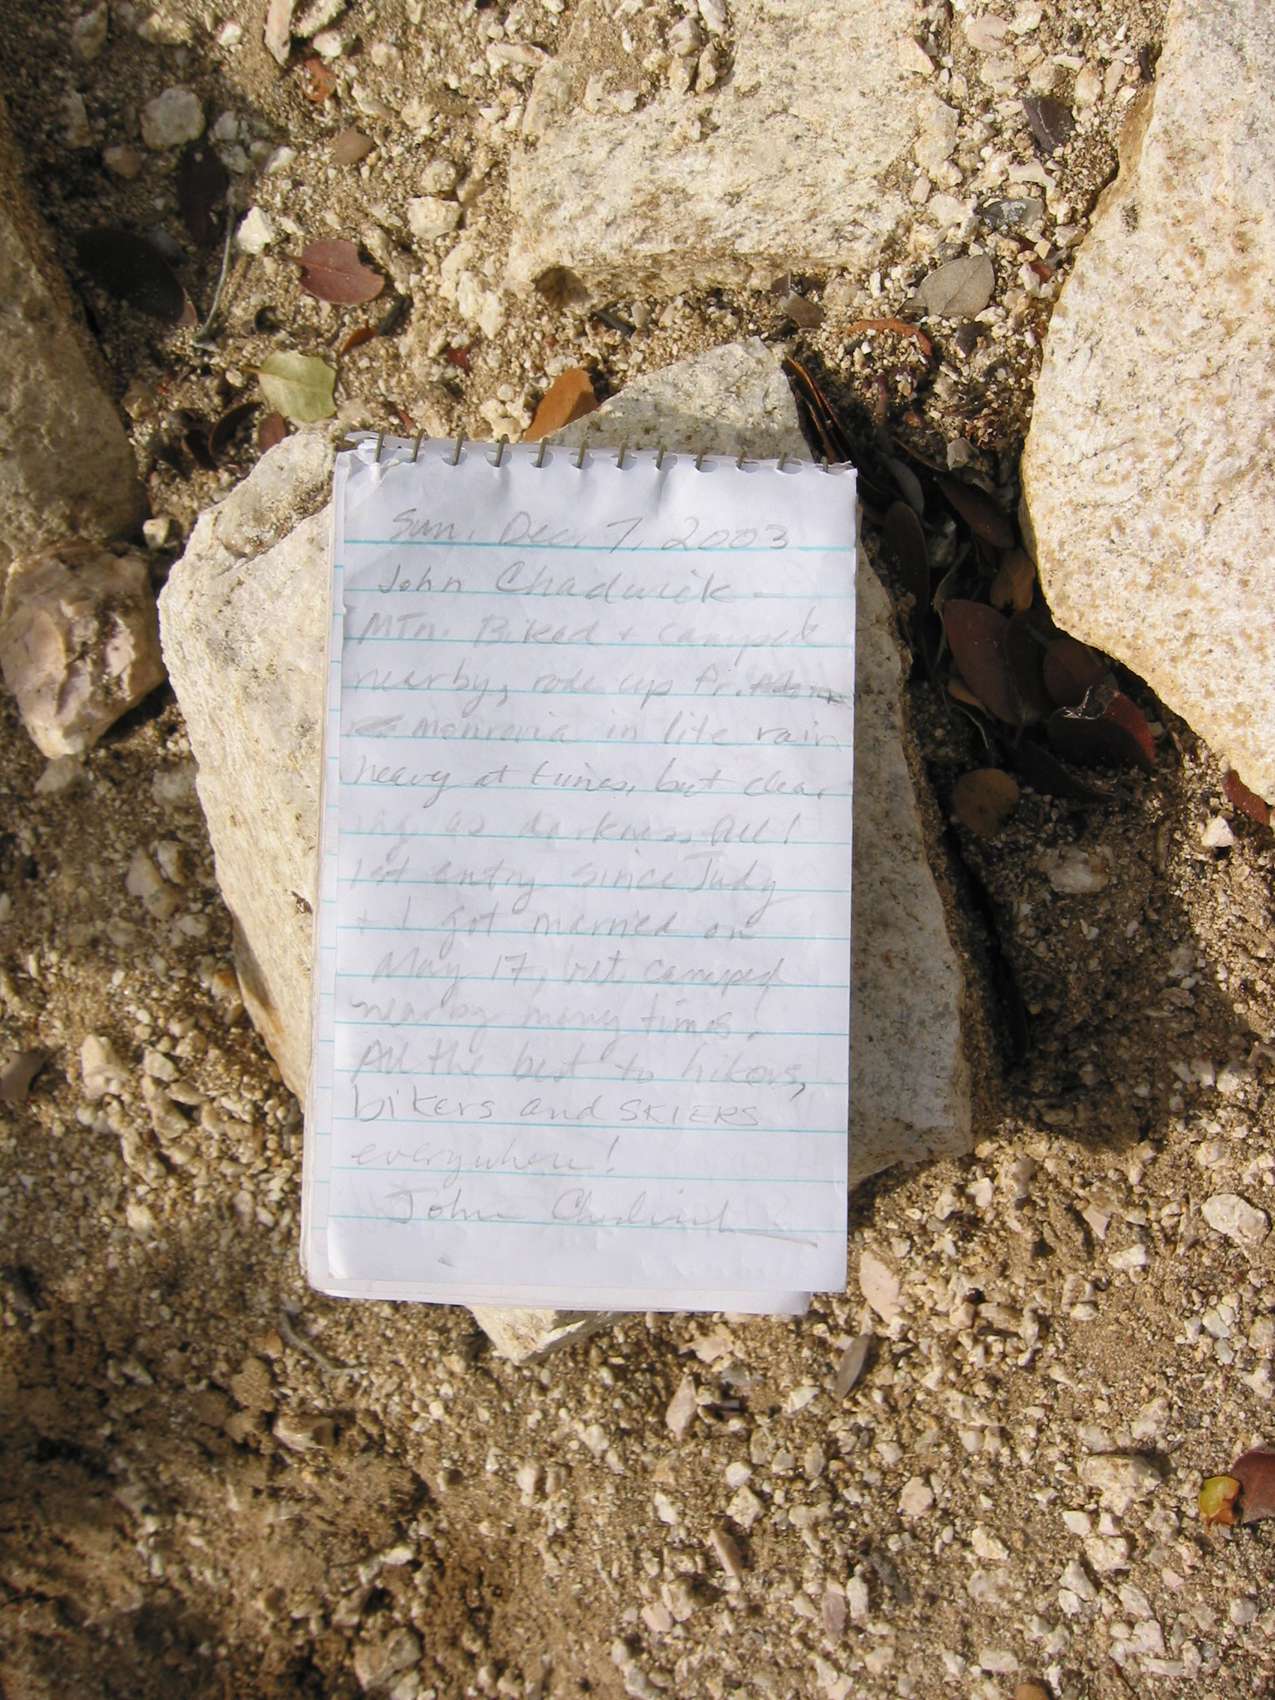 Sun. Dec. 7, 2003
John Chadwick -
MTn. Biked + camped
nearby, rode up fr.
monrovia in lite rain
heavy at times, but clear
ing as darkness fell!
1st entry since Judy
+ I got married on
May 17, but camped
nearby many times!
All the best to hikers,
bikers and SKIERS
everywhere!
John Chadwick